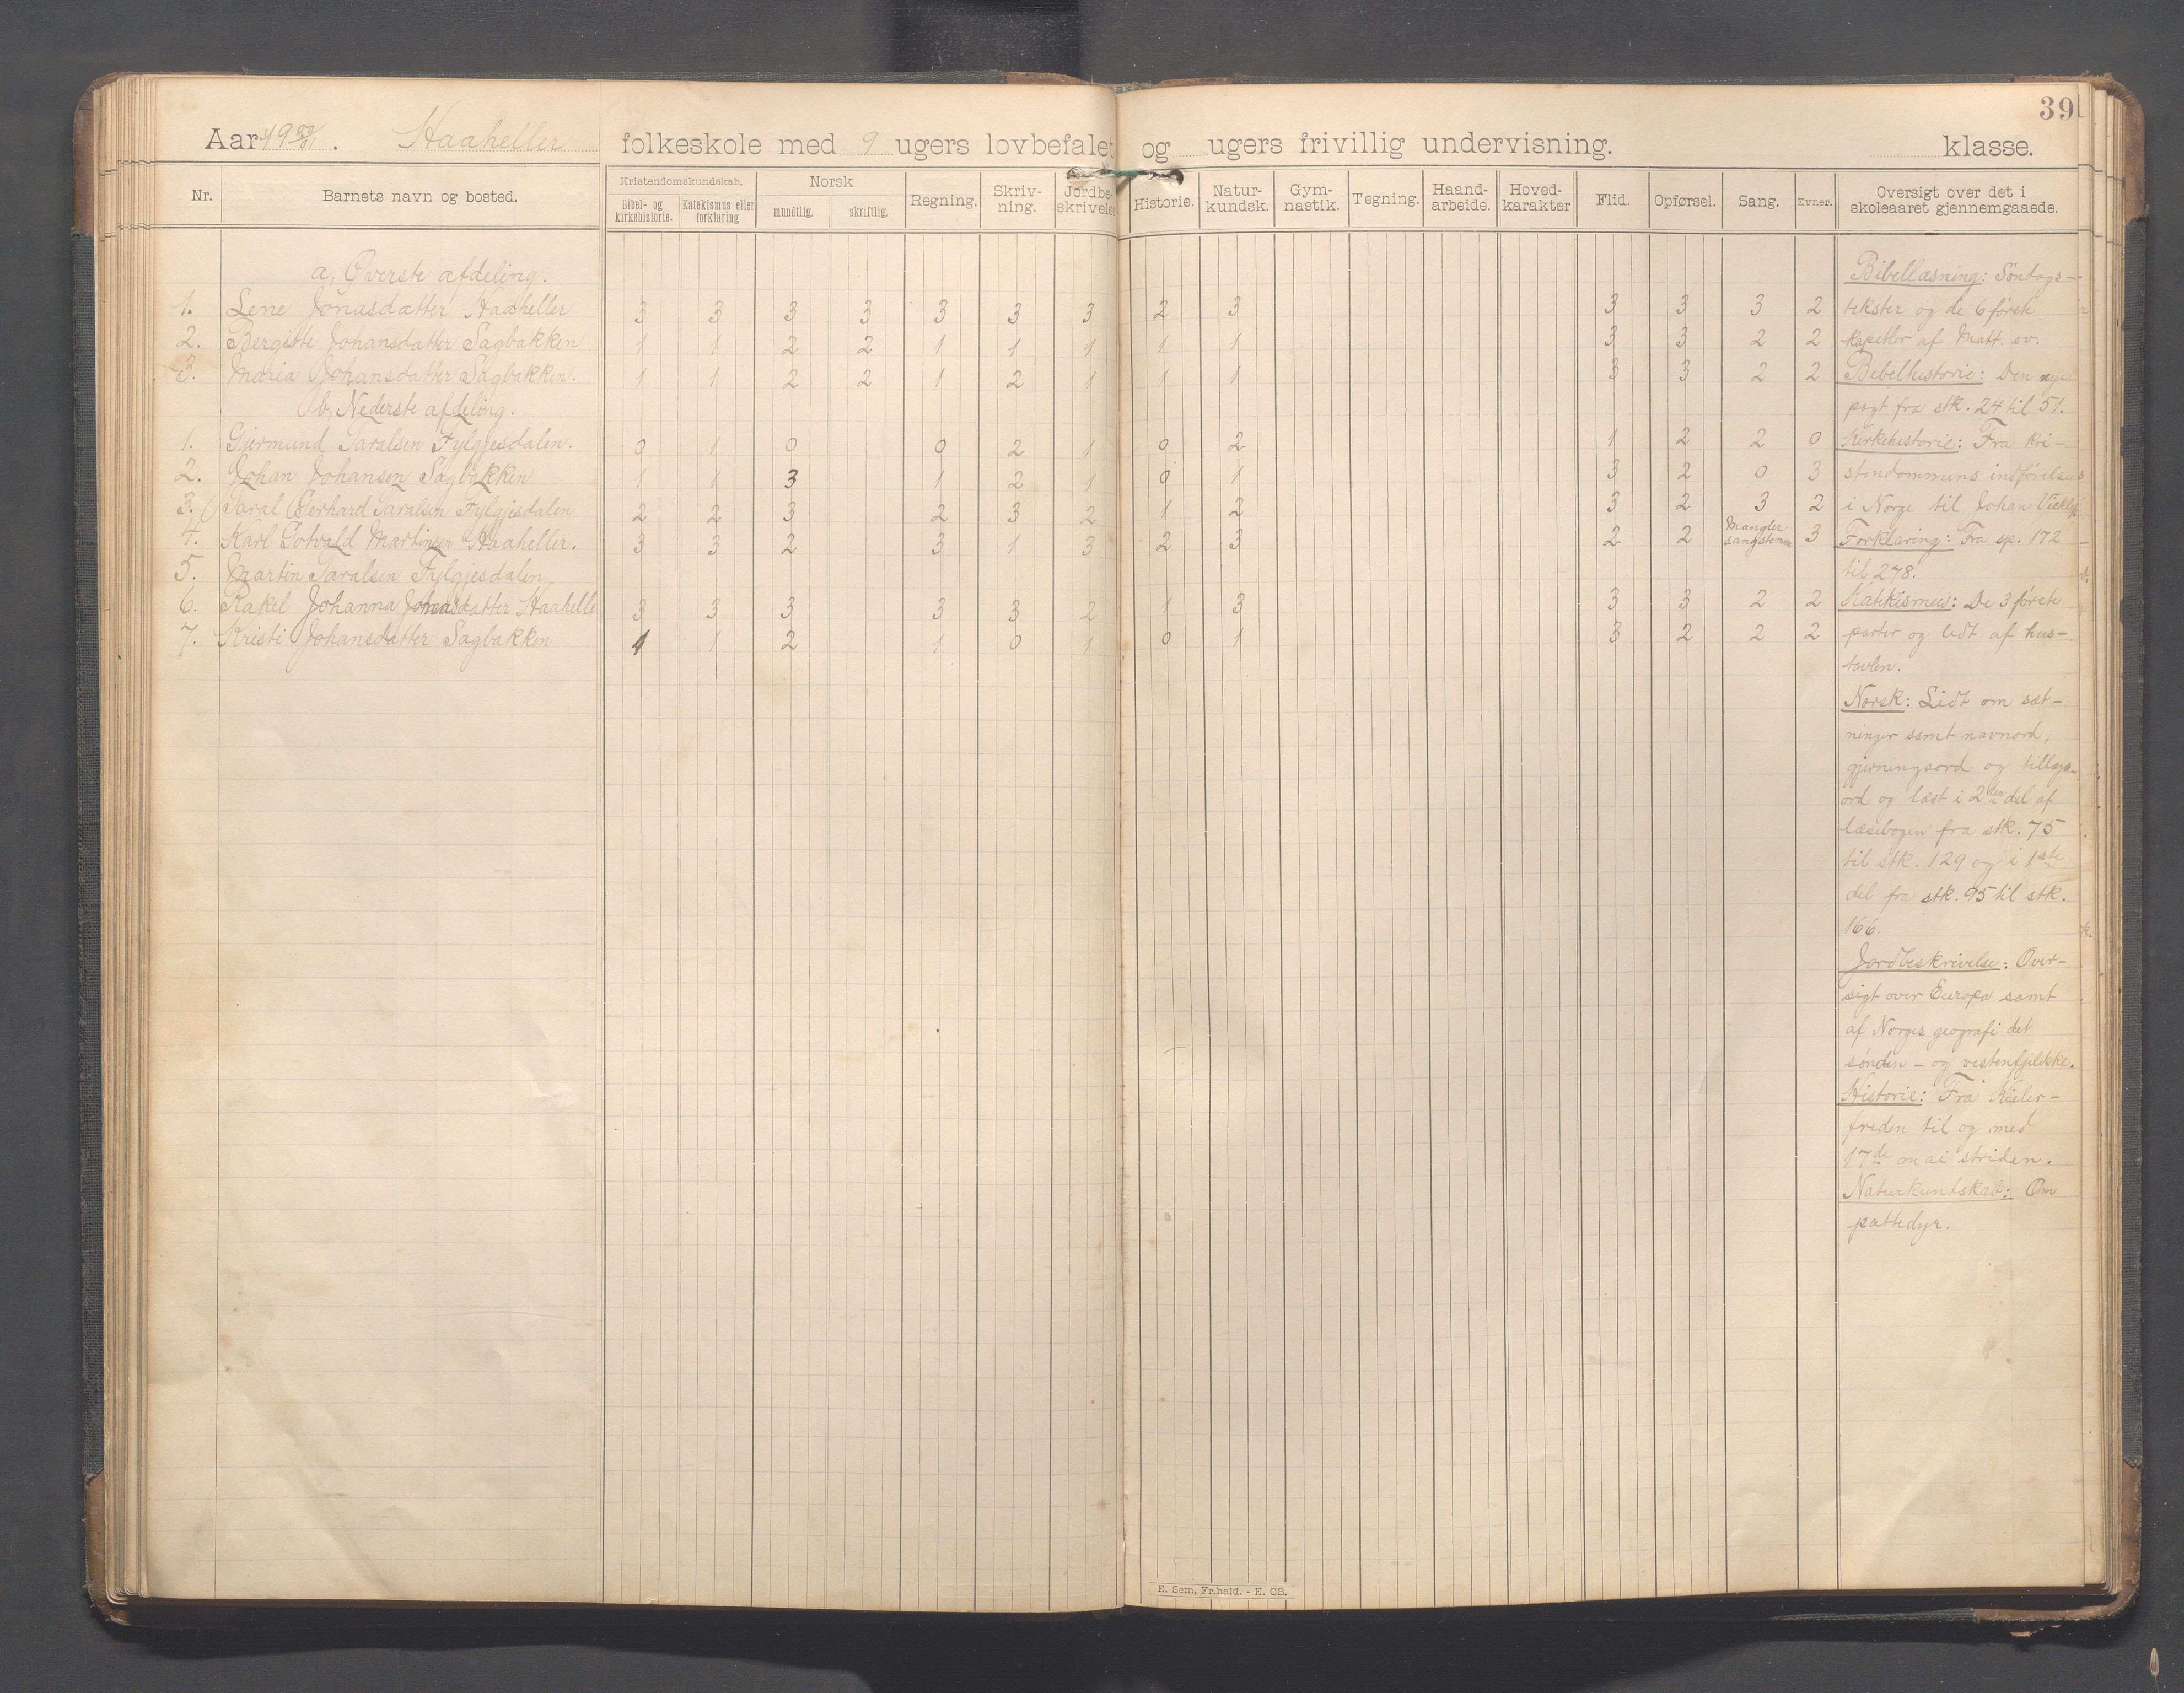 39
Aar 1900/01. Haaheller folkeskole med 9 ugers lovbefalet og ugers frivillig undervisning. klasse.
Nr. Barnets navn og bosted. Kristendomskundskab. Bibel- og kirkehistorie. Katekismus eller forklaring Norsk mundtlig. skriftlig. Regning. Skriv-ning. Jordbe-skrivelse Historie. Natur-kundsk. Gym-nastik. Tegning. Haand-arbeide. Hoved-karakter Flid. Opførsel. Sang. Evner. Oversigt over det i skoleaaret gjennemgaaede.
a, Øverste afdeling.
1. Lene Jonasdatter Haaheller 3 3 3 3 3 3 3 2 3 3 3 3 2
2. Bergitte Johansdatter Sagbakken 1 1 2 2 1 1 1 1 1 3 3 2 2
3. Maria Johansdatter Sagbakken. 1 1 2 2 1 2 1 1 1 3 3 2 2
b, Nederste afdeling.
1. Gjermund Taralsen Fylgjesdalen. 0 1 0 0 2 1 0 2 1 2 2 0
2. Johan Johansen Sagbakken 1 1 3 1 2 1 0 1 3 2 0 3
3. Taral Gerhard Taralsen Fylgjesdalen 2 2 3 2 3 2 1 2 3 2 3 2
4. Karl Gotvald Martinsen Haaheller. 3 3 2 3 1 3 2 3 2 2 Mangler sangstemme 3
5. Martin Taralsen Fylgjesdalen
6. Rakel Johanna Jonasdatter Haahelle 3 3 3 3 3 2 1 3 3 3 2 2
7. Kristi Johansdatter Sagbakken 1 1 2 1 0 1 0 1 3 2 2 2
Bibellæsning: Söndags-
tekster og de 6 förste
kapitler af Matt. ev.
Bibelhistorie: Den nye
pagt fra stk. 24 til 51.
Kirkehistorie: Fra kri-
stendommens indförelse
i Norge til Johan Viklef
Forklaring: Fra sp. 172
til 278.
Katekismus: De 3 förste
parter og lidt af hus-
tavlen.
Norsk: Lidt om sæt-
ninger samt navnord,
gjerningsord og tillægs-
ord og læst i 2den del af
læsebogen fra stk. 75
til stk. 129 og i 1ste
del fra stk. 95 til stk.
166.
Jordbeskrivelse: Over-
sigt over Europa samt
af Norges geografi det
sönden- og vestenfjeldske.
Historie: Fra Kieler-
freden til og med
17de mai striden.
Naturkundskab: Om
pattedyr.
E. Sem, Fr.hald. - K. CB.